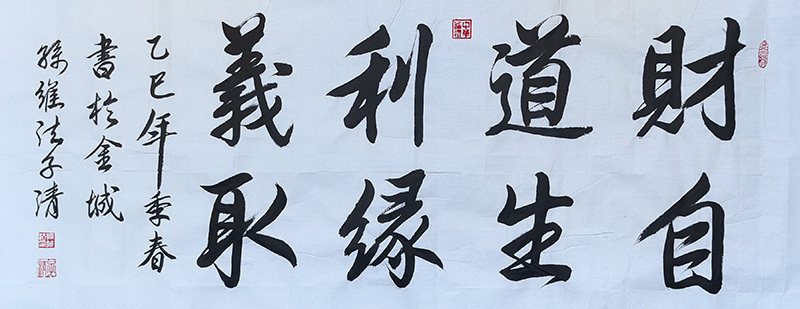 財自
道生
利緣
義取
乙巳年季春
書於金城
孫維法子清